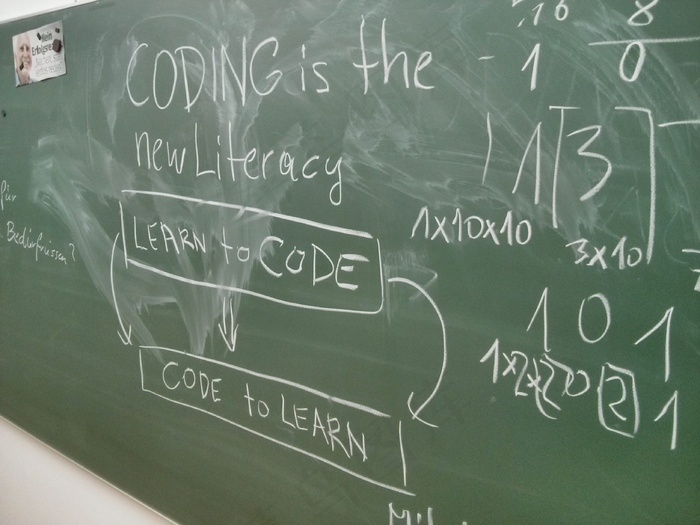 CODING is the
new Literacy
LEARN to CODE
CODE to LEARN
für
Bedürfnissen?
Mein
16 8
- 1 0
1 3
1x10x10 3x10
1 0 1
1